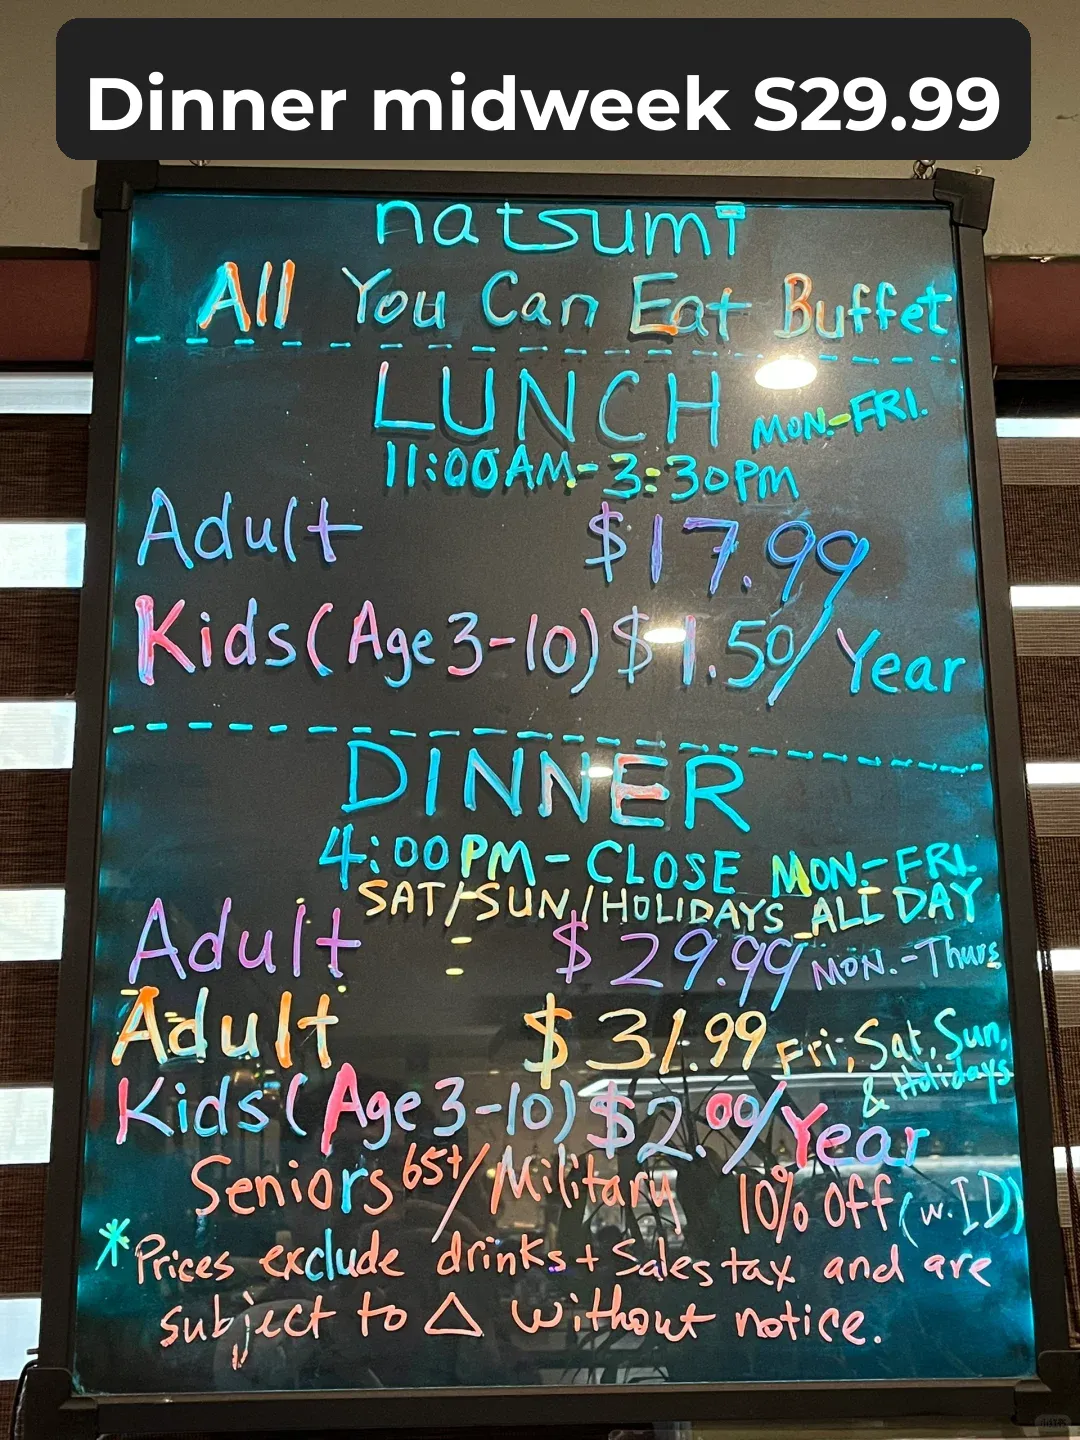 Dinner midweek S29.99
natsumi
All You Can Eat Buffet
LUNCH MON.-FRI.
11:00AM-3:30PM
Adult $17.99
Kids (Age 3-10) $1.50/Year
DINNER
4:00PM-CLOSE MON-FRI.
SAT/SUN/HOLIDAYS ALL DAY
Adult $29.99 MON.-Thurs
Adult $31.99 Fri, Sat, Sun,
& Holidays
Kids (Age 3-10) $2.09/Year
Seniors 65+/Military 10% Off (w. ID)
*Prices exclude drinks + Sales tax and are
subject to △ without notice.